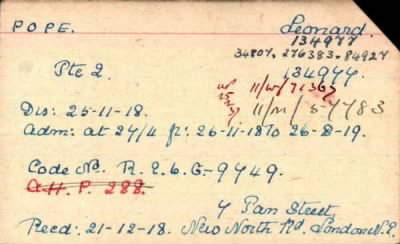 POPE. Leonard.
134977
34807. 276383. 84927
Pte 2. 134977.
11/W/71367
Dis: 25-11-18. 11/M/57783
Adm: at 27/4 fr: 26-11-18 to 26-8-19.
Code No. R.E.6.G-9749.
A.H.P. 288.
7 Pan Street,
Recd: 21-12-18. New North Rd, London N.E.